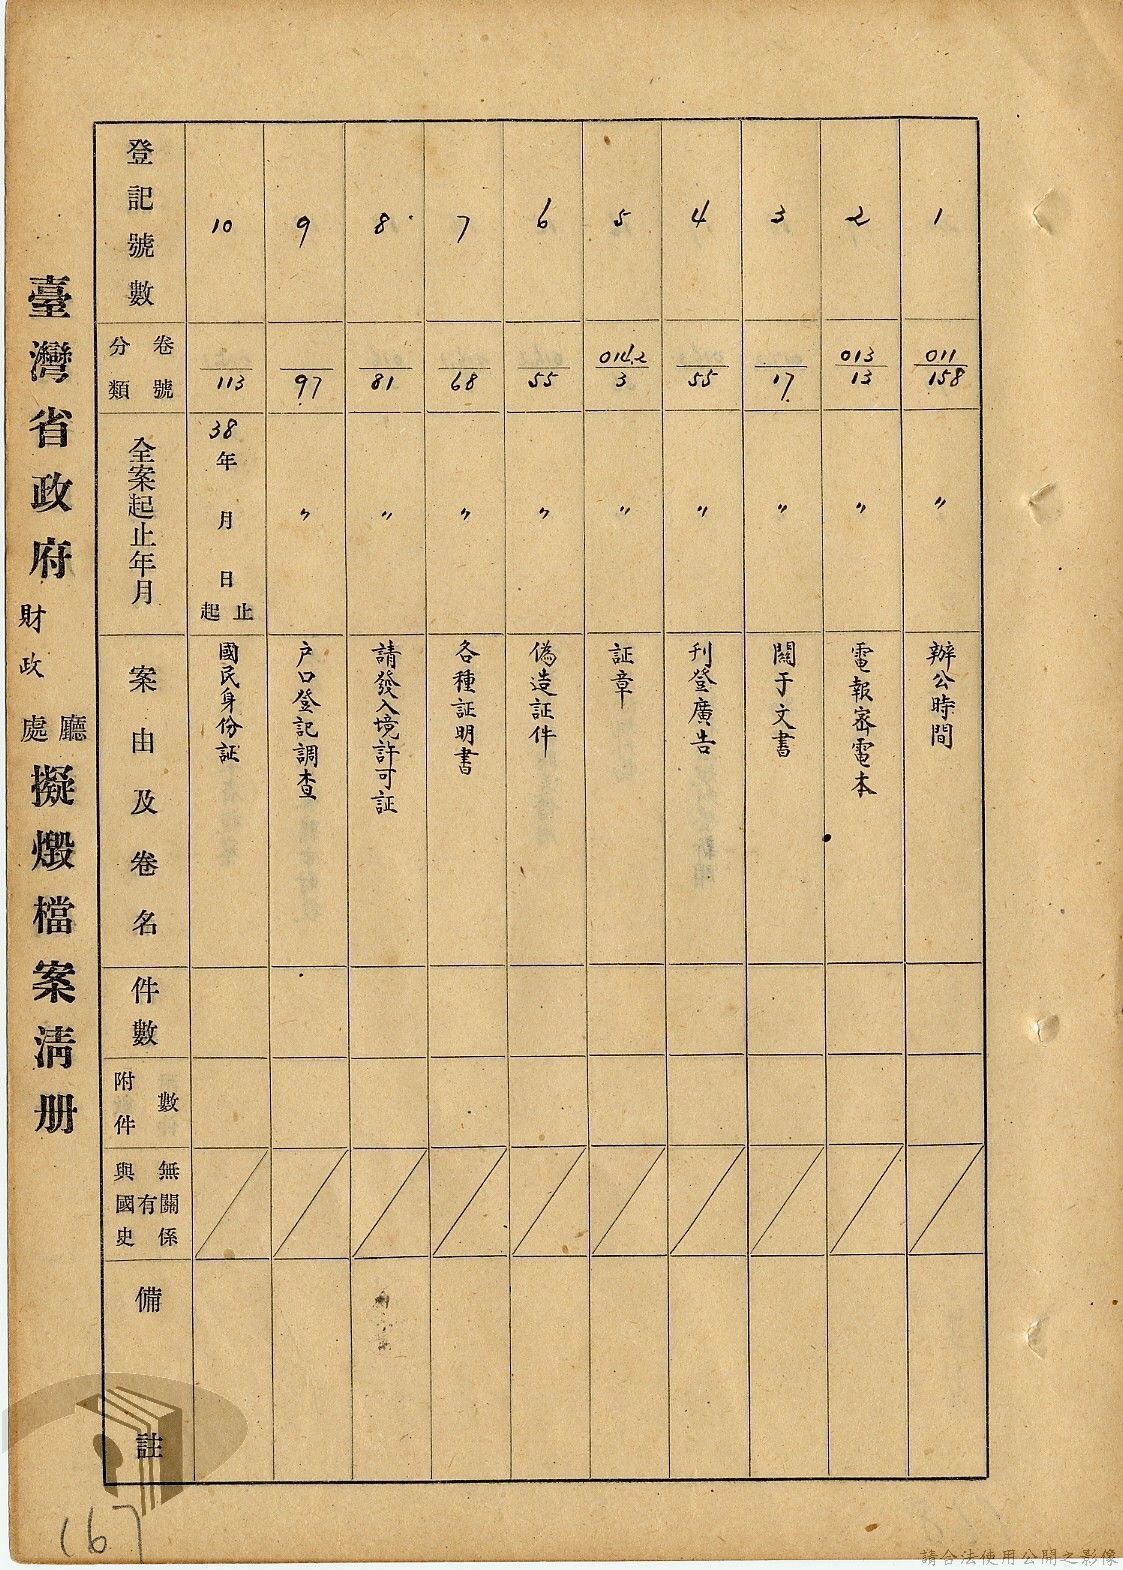 臺灣省政府財政廳處擬燬檔案清册
登記號數
分類 卷號
全案起止年月
案由及卷名
件數
附件數
與國史有無關係
備註
1
011/158
〃
辦公時間
2
013/13
〃
電報密電本
3
17
〃
關于文書
4
55
〃
刋登廣告
5
014.2/3
〃
証章
6
55
〃
偽造証件
7
68
〃
各種証明書
8
81
〃
請發入境許可証
9
97
〃
户口登記調查
10
113
38年 月 日起止
國民身份証
(67
請合法使用公開之影像